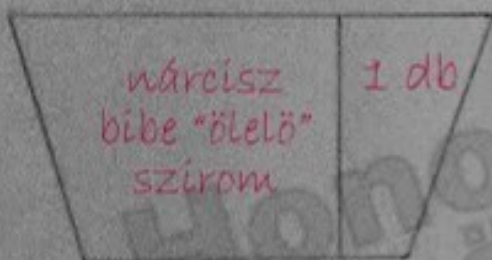 nárcisz
bibe "ölelö"
szirom
1 db
Hono